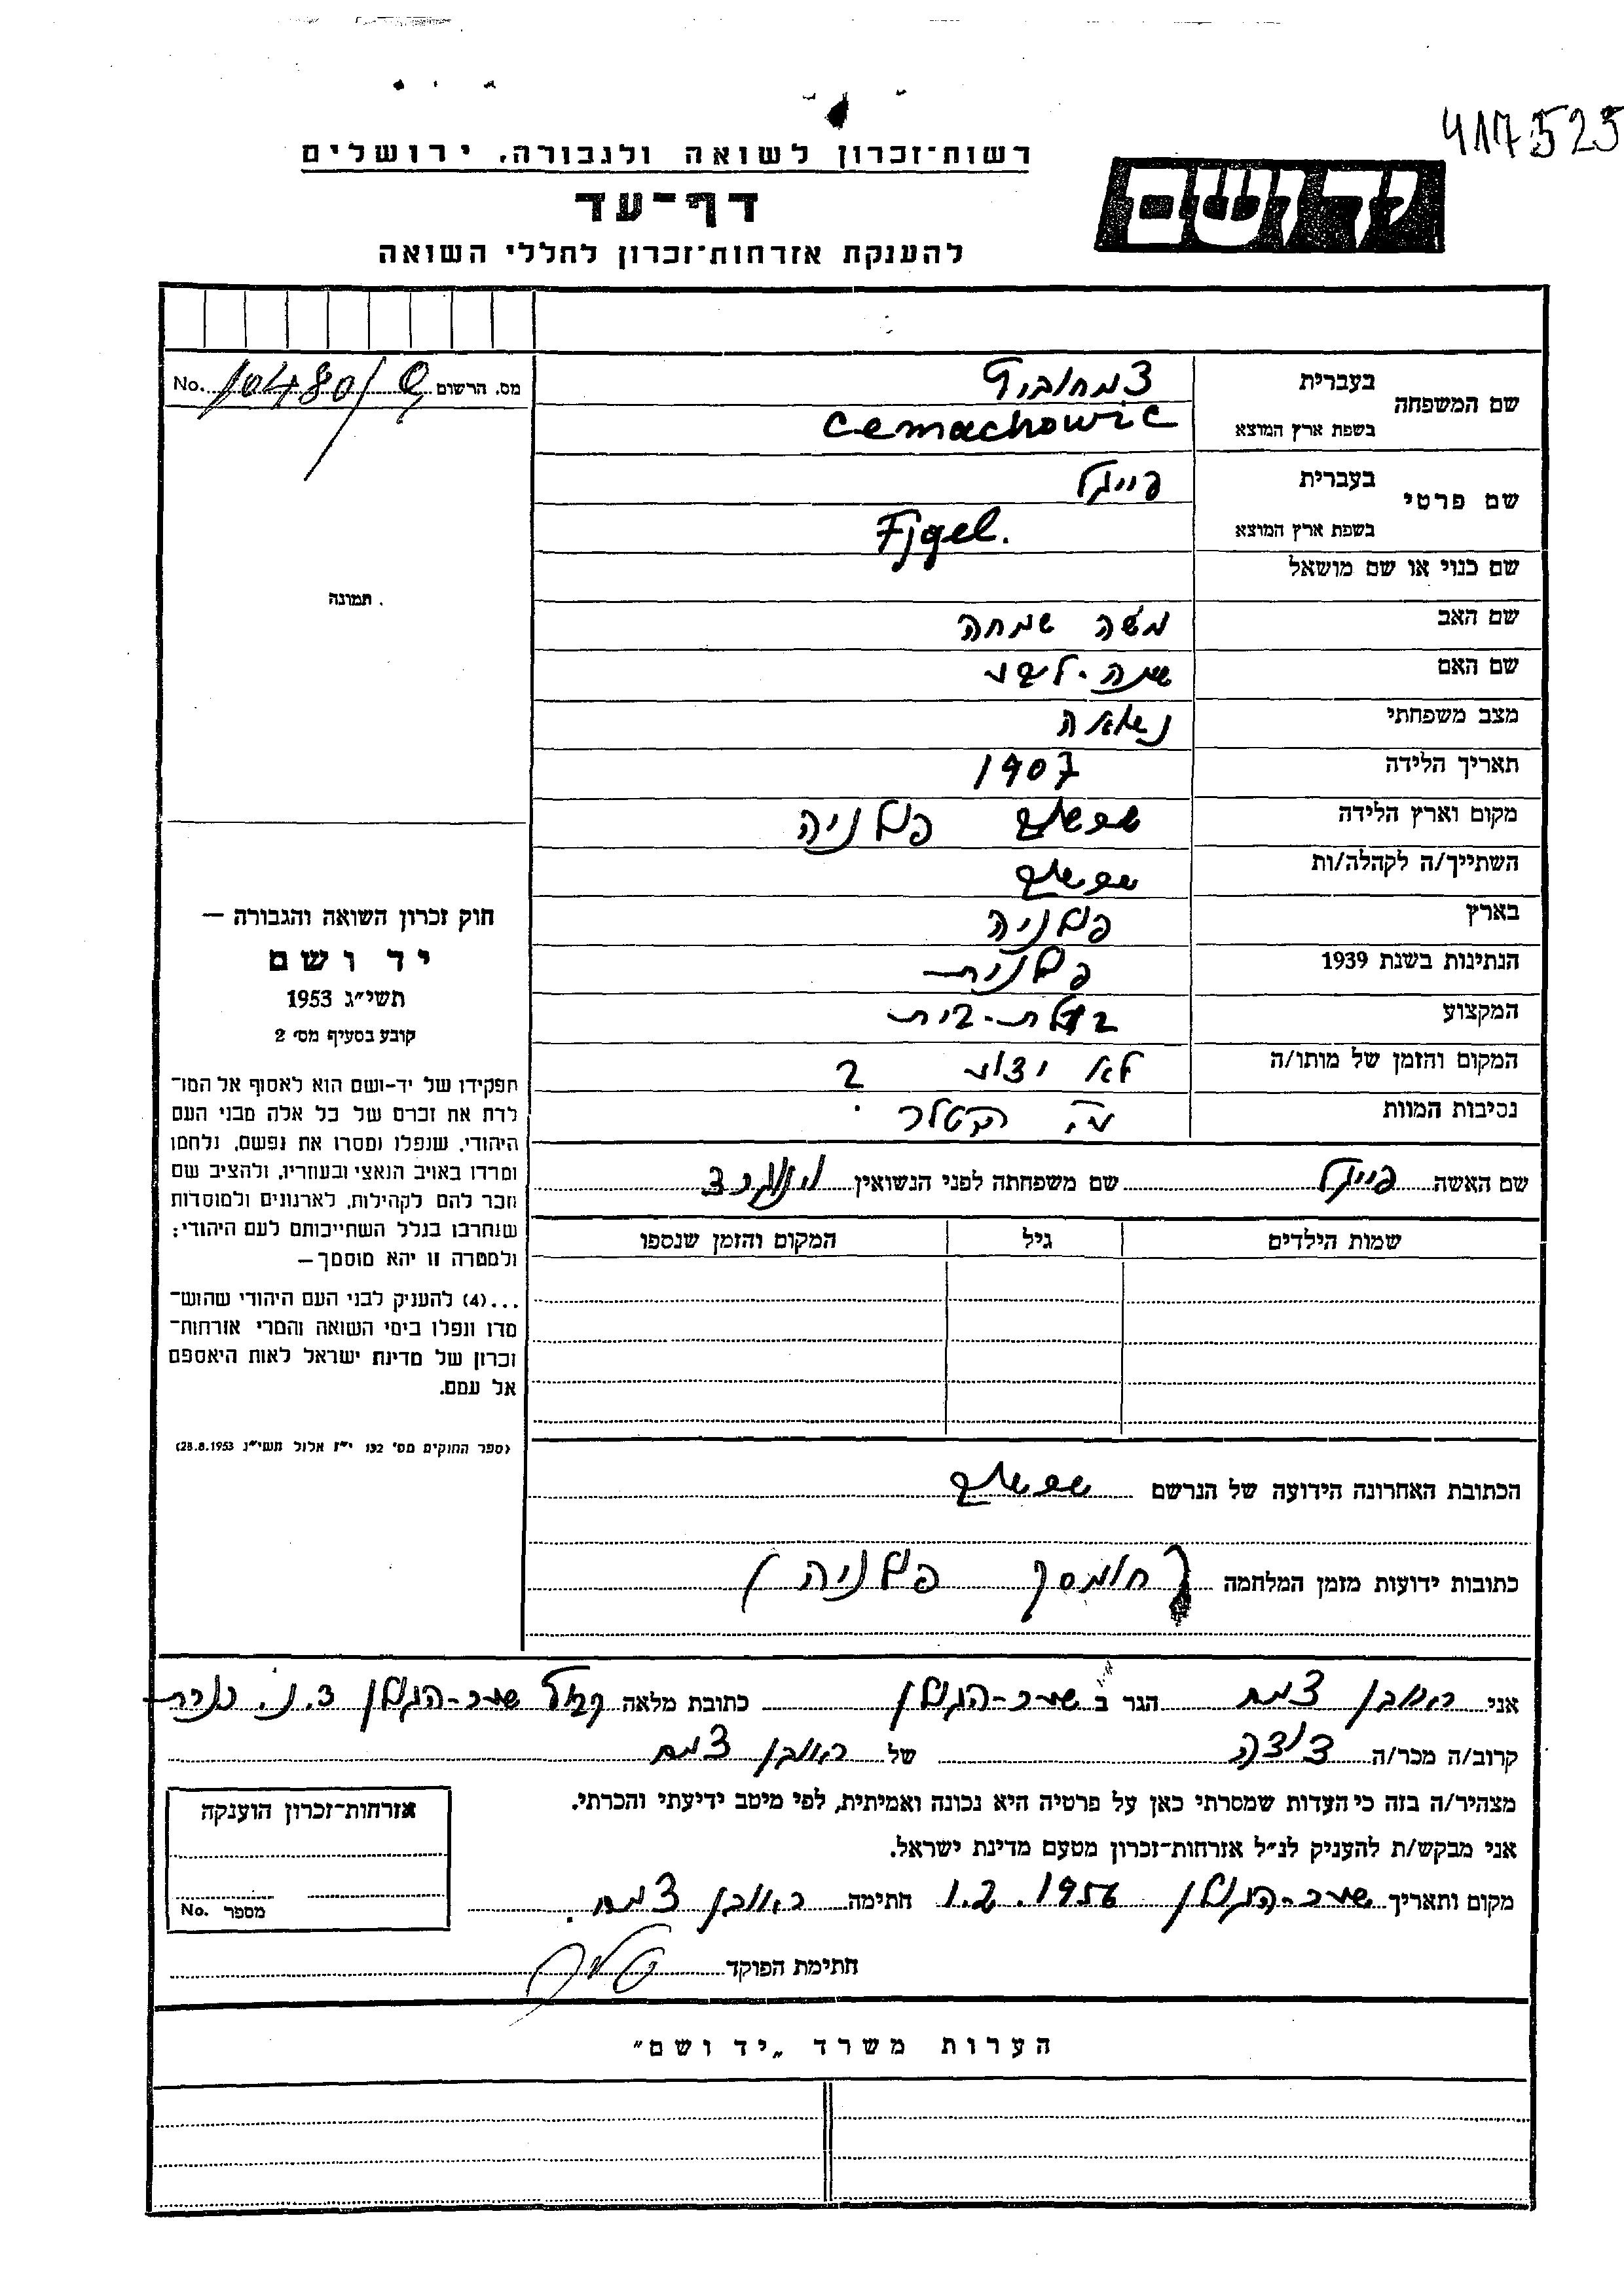 417525
רשות־זכרון לשואה ולגבורה, ירושלים
יד ושם
דף־עד
להענקת אזרחות־זכרון לחללי השואה
שם המשפחה
בעברית צמחוביץ
בשפת ארץ המוצא Cemachowic
מס. הרשום 10480/ No.
שם פרטי
בעברית פייגל
בשפת ארץ המוצא Fjgel.
שם כנוי או שם מושאל
תמונה
שם האב משה שמחה
שם האם
מצב משפחתי נשואה
תאריך הלידה 1907
מקום וארץ הלידה פולניה
השתייך/ה לקהלה/ות
בארץ פולניה
הנתינות בשנת 1939 פולנית
המקצוע בעלת-בית
המקום והזמן של מותו/ה לא ידוע ?
נסיבות המוות
חוק זכרון השואה והגבורה —
יד ושם
תשי״ג 1953
קובע בסעיף מס׳ 2
תפקידו של יד-ושם הוא לאסוף אל המו־
לדת את זכרם של כל אלה מבני העם
היהודי, שנפלו ומסרו את נפשם, נלחמו
ומרדו באויב הנאצי ובעוזריו, ולהציב שם
וזכר להם לקהילות, לארגונים ולמוסדות
שנחרבו בגלל השתייכותם לעם היהודי;
ולמטרה זו יהא מוסמך —
...(4) להעניק לבני העם היהודי שהוש־
מדו ונפלו בימי השואה והמרי אזרחות־
זכרון של מדינת ישראל לאות היאספם
אל עמם.
(ספר החוקים מס׳ 132 י״ז אלול תשי״ג 28.8.1953)
שם האשה פייגל שם משפחתה לפני הנשואין
שמות הילדים גיל המקום והזמן שנספו
הכתובת האחרונה הידועה של הנרשם
כתובות ידועות מזמן המלחמה פולניה
אני ראובן צמח הגר ב שער-הגולן כתובת מלאה שער-הגולן ד.נ.
קרוב/ה מכר/ה דודה של ראובן צמח
מצהיר/ה בזה כי העדות שמסרתי כאן על פרטיה היא נכונה ואמיתית, לפי מיטב ידיעתי והכרתי.
אני מבקש/ת להעניק לנ״ל אזרחות־זכרון מטעם מדינת ישראל.
מקום ותאריך שער-הגולן 1.2.1956 חתימה ראובן צמח.
אזרחות־זכרון הוענקה
מספר No.
חתימת הפוקד
הערות משרד „יד ושם״